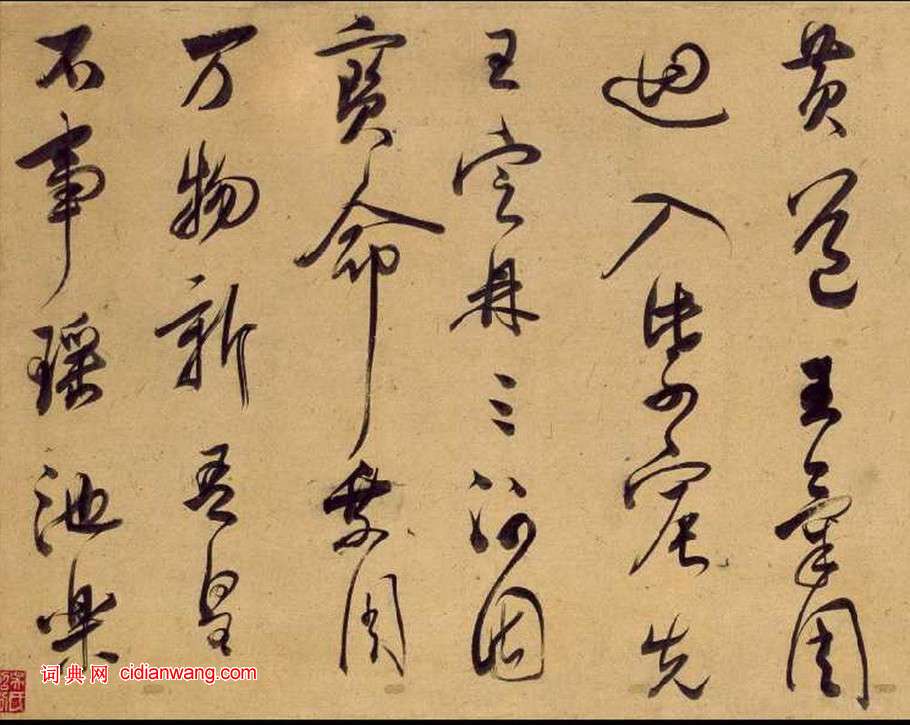 黄道王氣周
迴入紫宸先
王定鼎三河固
寶命乘周
万物新吾皇
不事瑶池樂
词典网 cidianwang.com